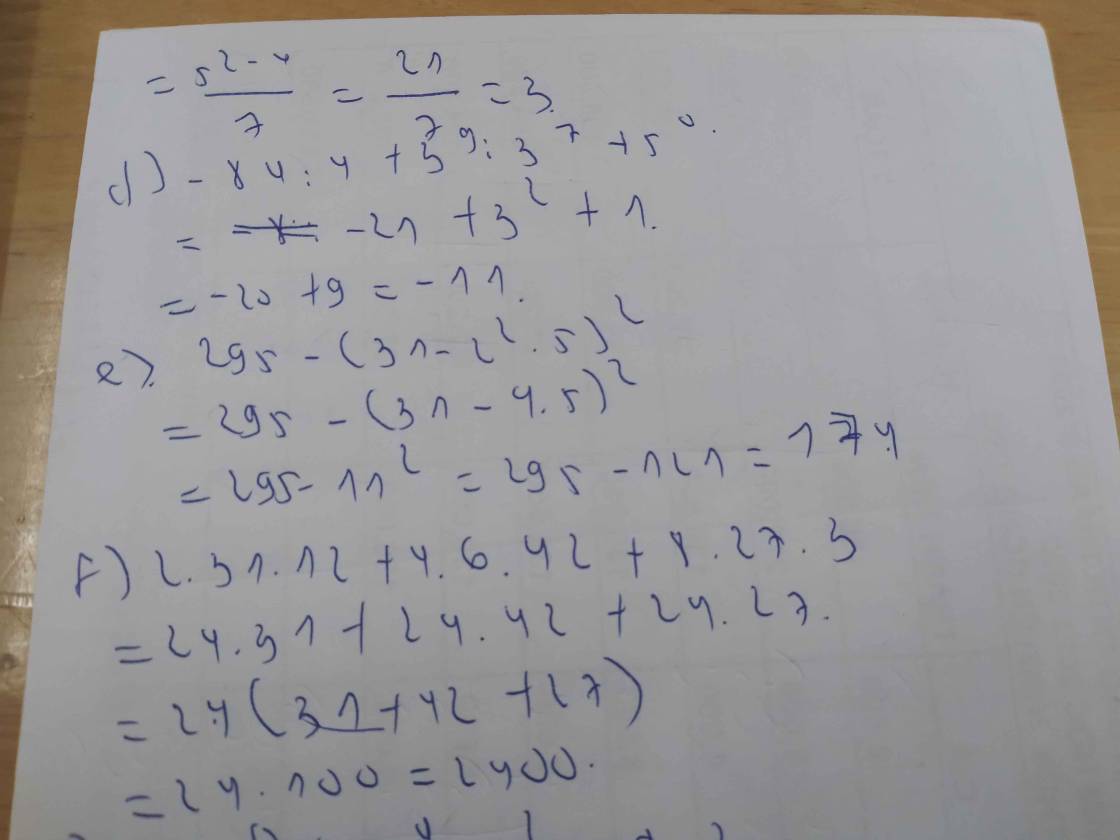 = \frac{5^2-4}{7} = \frac{21}{7} = 3.
d) -84:4 + 3^9:3^7 + 5^0.
= -21 + 3^2 + 1.
= -20 + 9 = -11.
e). 295 - (31-2^2.5)^2
= 295 - (31 - 4.5)^2
= 295 - 11^2 = 295 - 121 = 174
f) 2.31.12 + 4.6.42 + 8.27.3
= 24.31 + 24.42 + 24.27.
= 24(31+42+27)
= 24.100 = 2400.